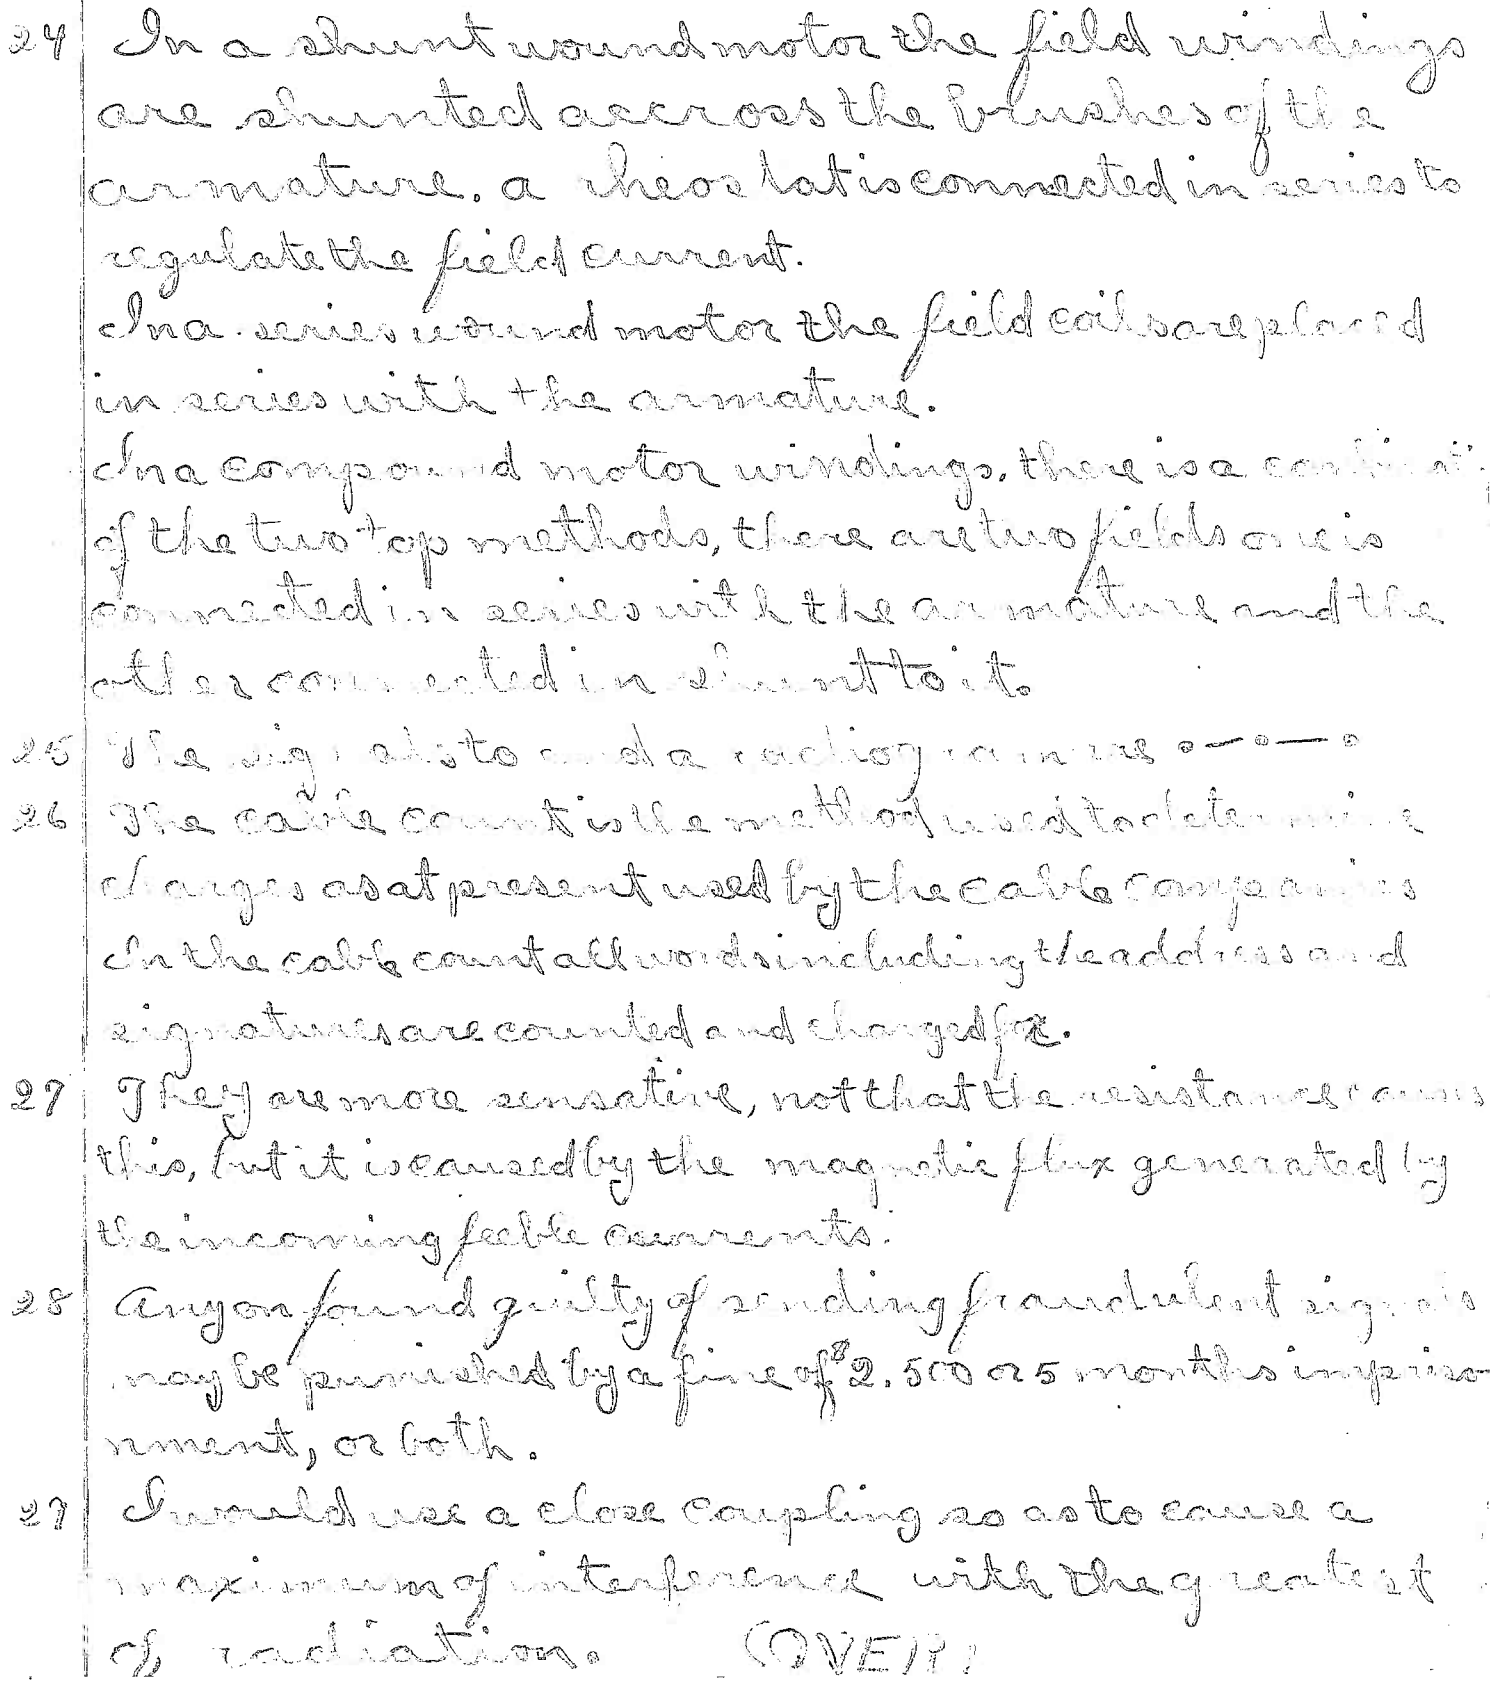 24 In a shunt wound motor the field windings
are shunted accross the brushes of the
armature. a rheostat is connected in series to
regulate the field current.
In a series wound motor the field coils are placed
in series with the armature.
In a compound motor windings, there is a combinati
of the two top methods, there are two fields one is
connected in series with the armature and the
other connected in shunt to it.
25 The signals to end a radiogram are ·—·—·
26 The cable count is the method used to determine
charges as at present used by the cable companies
In the cable count all words including the address and
signatures are counted and charged for.
27 They are more sensative, not that the resistance causes
this, but it is caused by the magnetic flux generated by
the incoming feeble currents.
28 Anyon found guilty of sending fraudulent signals
may be punished by a fine of $2.500 or 5 months impriso
nment, or both.
29 I would use a close coupling so as to cause a
maximum of interference with the greatest
of radiation. (OVER)